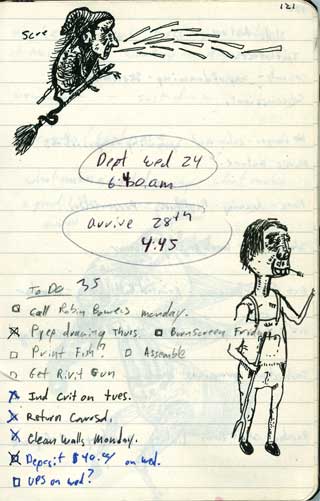 121
Scre
Dept wed 24
6:40am
arrive 28th
4:45
To Do 35
Call Robin Bowers monday.
Prep drawing Thurs
Print Fish? Assemble
Get Rivit Gun
Ind Crit on tues.
Return
Clean walls Monday.
Deposit $40.00 on wed.
UPS on wed?